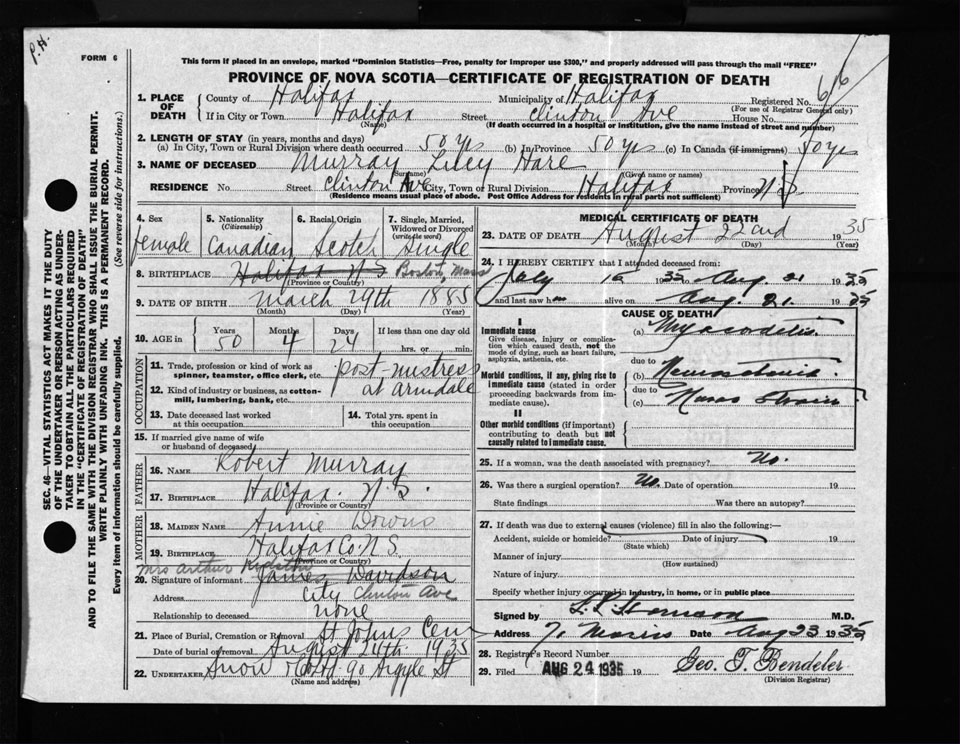 P.H.
FORM 6
This form if placed in an envelope, marked "Dominion Statistics—Free, penalty for improper use $300," and properly addressed will pass through the mail "FREE"
PROVINCE OF NOVA SCOTIA—CERTIFICATE OF REGISTRATION OF DEATH
SEC. 46—VITAL STATISTICS ACT MAKES IT THE DUTY
OF THE UNDERTAKER OR PERSON ACTING AS UNDER-
TAKER TO OBTAIN ALL THE PARTICULARS REQUIRED
IN THE "CERTIFICATE OF REGISTRATION OF DEATH"
AND TO FILE THE SAME WITH THE DIVISION REGISTRAR WHO SHALL ISSUE THE BURIAL PERMIT.
WRITE PLAINLY WITH UNFADING INK. THIS IS A PERMANENT RECORD.
Every item of information should be carefully supplied. (See reverse side for instructions.)
1. PLACE OF DEATH County of Halifax Municipality of Halifax Registered No. 616
(For use of Registrar General only)
If in City or Town Halifax Street Clinton Ave House No.
(Name) (If death occurred in a hospital or institution, give the name instead of street and number)
2. LENGTH OF STAY (in years, months and days)
(a) In City, Town or Rural Division where death occurred 50 yrs (b) In Province 50 yrs (c) In Canada (if immigrant) 50 yrs
3. NAME OF DECEASED Murray Hare
(Surname) (Given name or names)
RESIDENCE No. Street Clinton Ave City, Town or Rural Division Halifax Province N.S.
(Residence means usual place of abode. Post Office Address for residents in rural parts not sufficient)
4. Sex female
5. Nationality (Citizenship) Canadian
6. Racial Origin Scotch
7. Single, Married, Widowed or Divorced (write the word) Single
8. BIRTHPLACE Halifax N S Boston, Mass
(Province or Country)
9. DATE OF BIRTH March 29th 1885
(Month) (Day) (Year)
10. AGE in Years 50 Months 4 Days 24 If less than one day old
hrs. or min.
OCCUPATION
11. Trade, profession or kind of work as spinner, teamster, office clerk, etc. post-mistress
12. Kind of industry or business, as cotton-mill, lumbering, bank, etc. at Armdale
13. Date deceased last worked at this occupation
14. Total yrs. spent in this occupation
15. If married give name of wife or husband of deceased
FATHER
16. NAME Robert Murray
17. BIRTHPLACE Halifax. N.S.
(Province or Country)
MOTHER
18. MAIDEN NAME Annie Downs
19. BIRTHPLACE Halifax Co. N.S.
(Province or Country)
Mrs Arthur
20. Signature of informant James Davidson
Address City Clinton Ave
Relationship to deceased none
21. Place of Burial, Cremation or Removal St Johns Cem
Date of burial or removal August 24th 1935
22. UNDERTAKER Snow & Co Ltd. 90 Argyle St
(Name and address)
MEDICAL CERTIFICATE OF DEATH
23. DATE OF DEATH August 22nd 1935
(Month) (Day) (Year)
24. I HEREBY CERTIFY that I attended deceased from:
July 15 1935 to Aug. 21 1935
and last saw h alive on Aug. 21. 1935
CAUSE OF DEATH
I
Immediate cause (a)
Give disease, injury or complication which caused death, not the mode of dying, such as heart failure, asphyxia, asthenia, etc.
due to
Morbid conditions, if any, giving rise to immediate cause (stated in order proceeding backwards from immediate cause). (b)
due to
(c)
II
Other morbid conditions (if important) contributing to death but not causally related to immediate cause.
25. If a woman, was the death associated with pregnancy? No.
26. Was there a surgical operation? No. Date of operation 19
State findings Was there an autopsy?
27. If death was due to external causes (violence) fill in also the following:—
Accident, suicide or homicide? Date of injury 19
(State which)
Manner of injury
(How sustained)
Nature of injury
Specify whether injury occurred in industry, in home, or in public place
Signed by M.D.
Address 71 Morris Date Aug 23 1935
28. Registrar's Record Number
29. Filed AUG 24 1935 19 Geo. T. Bendeler
(Division Registrar)